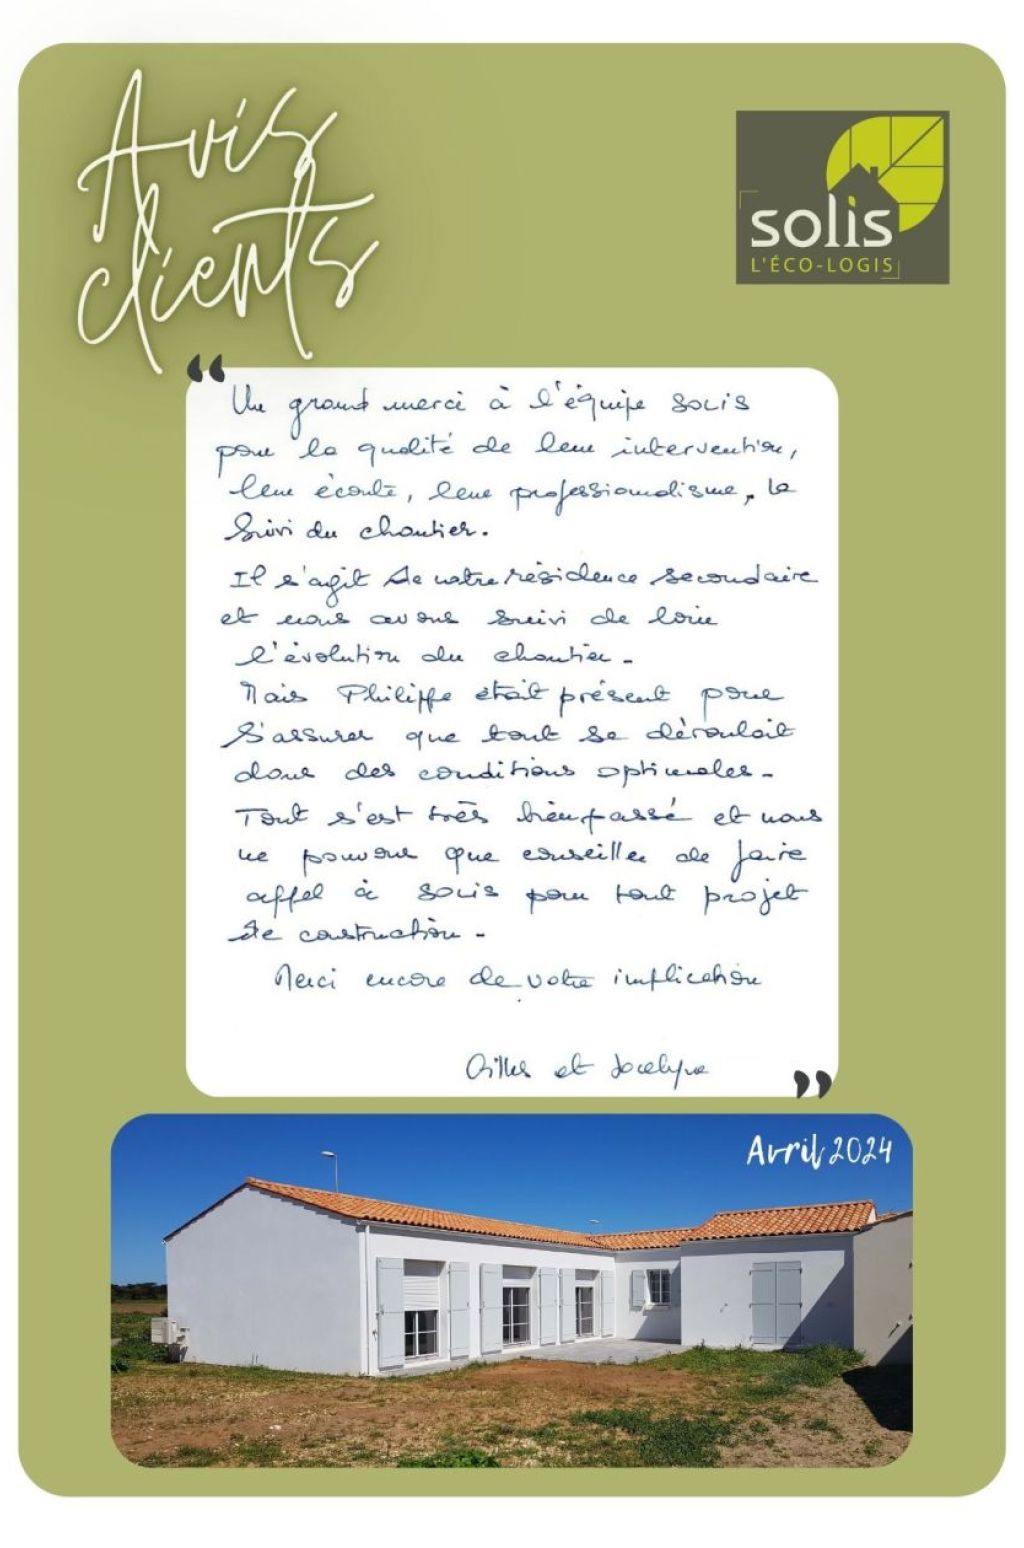 Avis
clients
solis
L'ÉCO-LOGIS
“
Un grand merci à l'équipe SOLIS
pour la qualité de leur intervention,
leur écoute, leur professionnalisme, le
suivi du chantier.
Il s'agit de notre résidence secondaire
et nous avons suivi de loin
l'évolution du chantier -
Mais Philippe était présent pour
s'assurer que tout se déroulait
dans des conditions optimales -
Tout s'est très bien passé et nous
ne pouvons que conseiller de faire
appel à SOLIS pour tout projet
de construction -
Merci encore de votre implication
Gilles et Jocelyne
”
Avril 2024